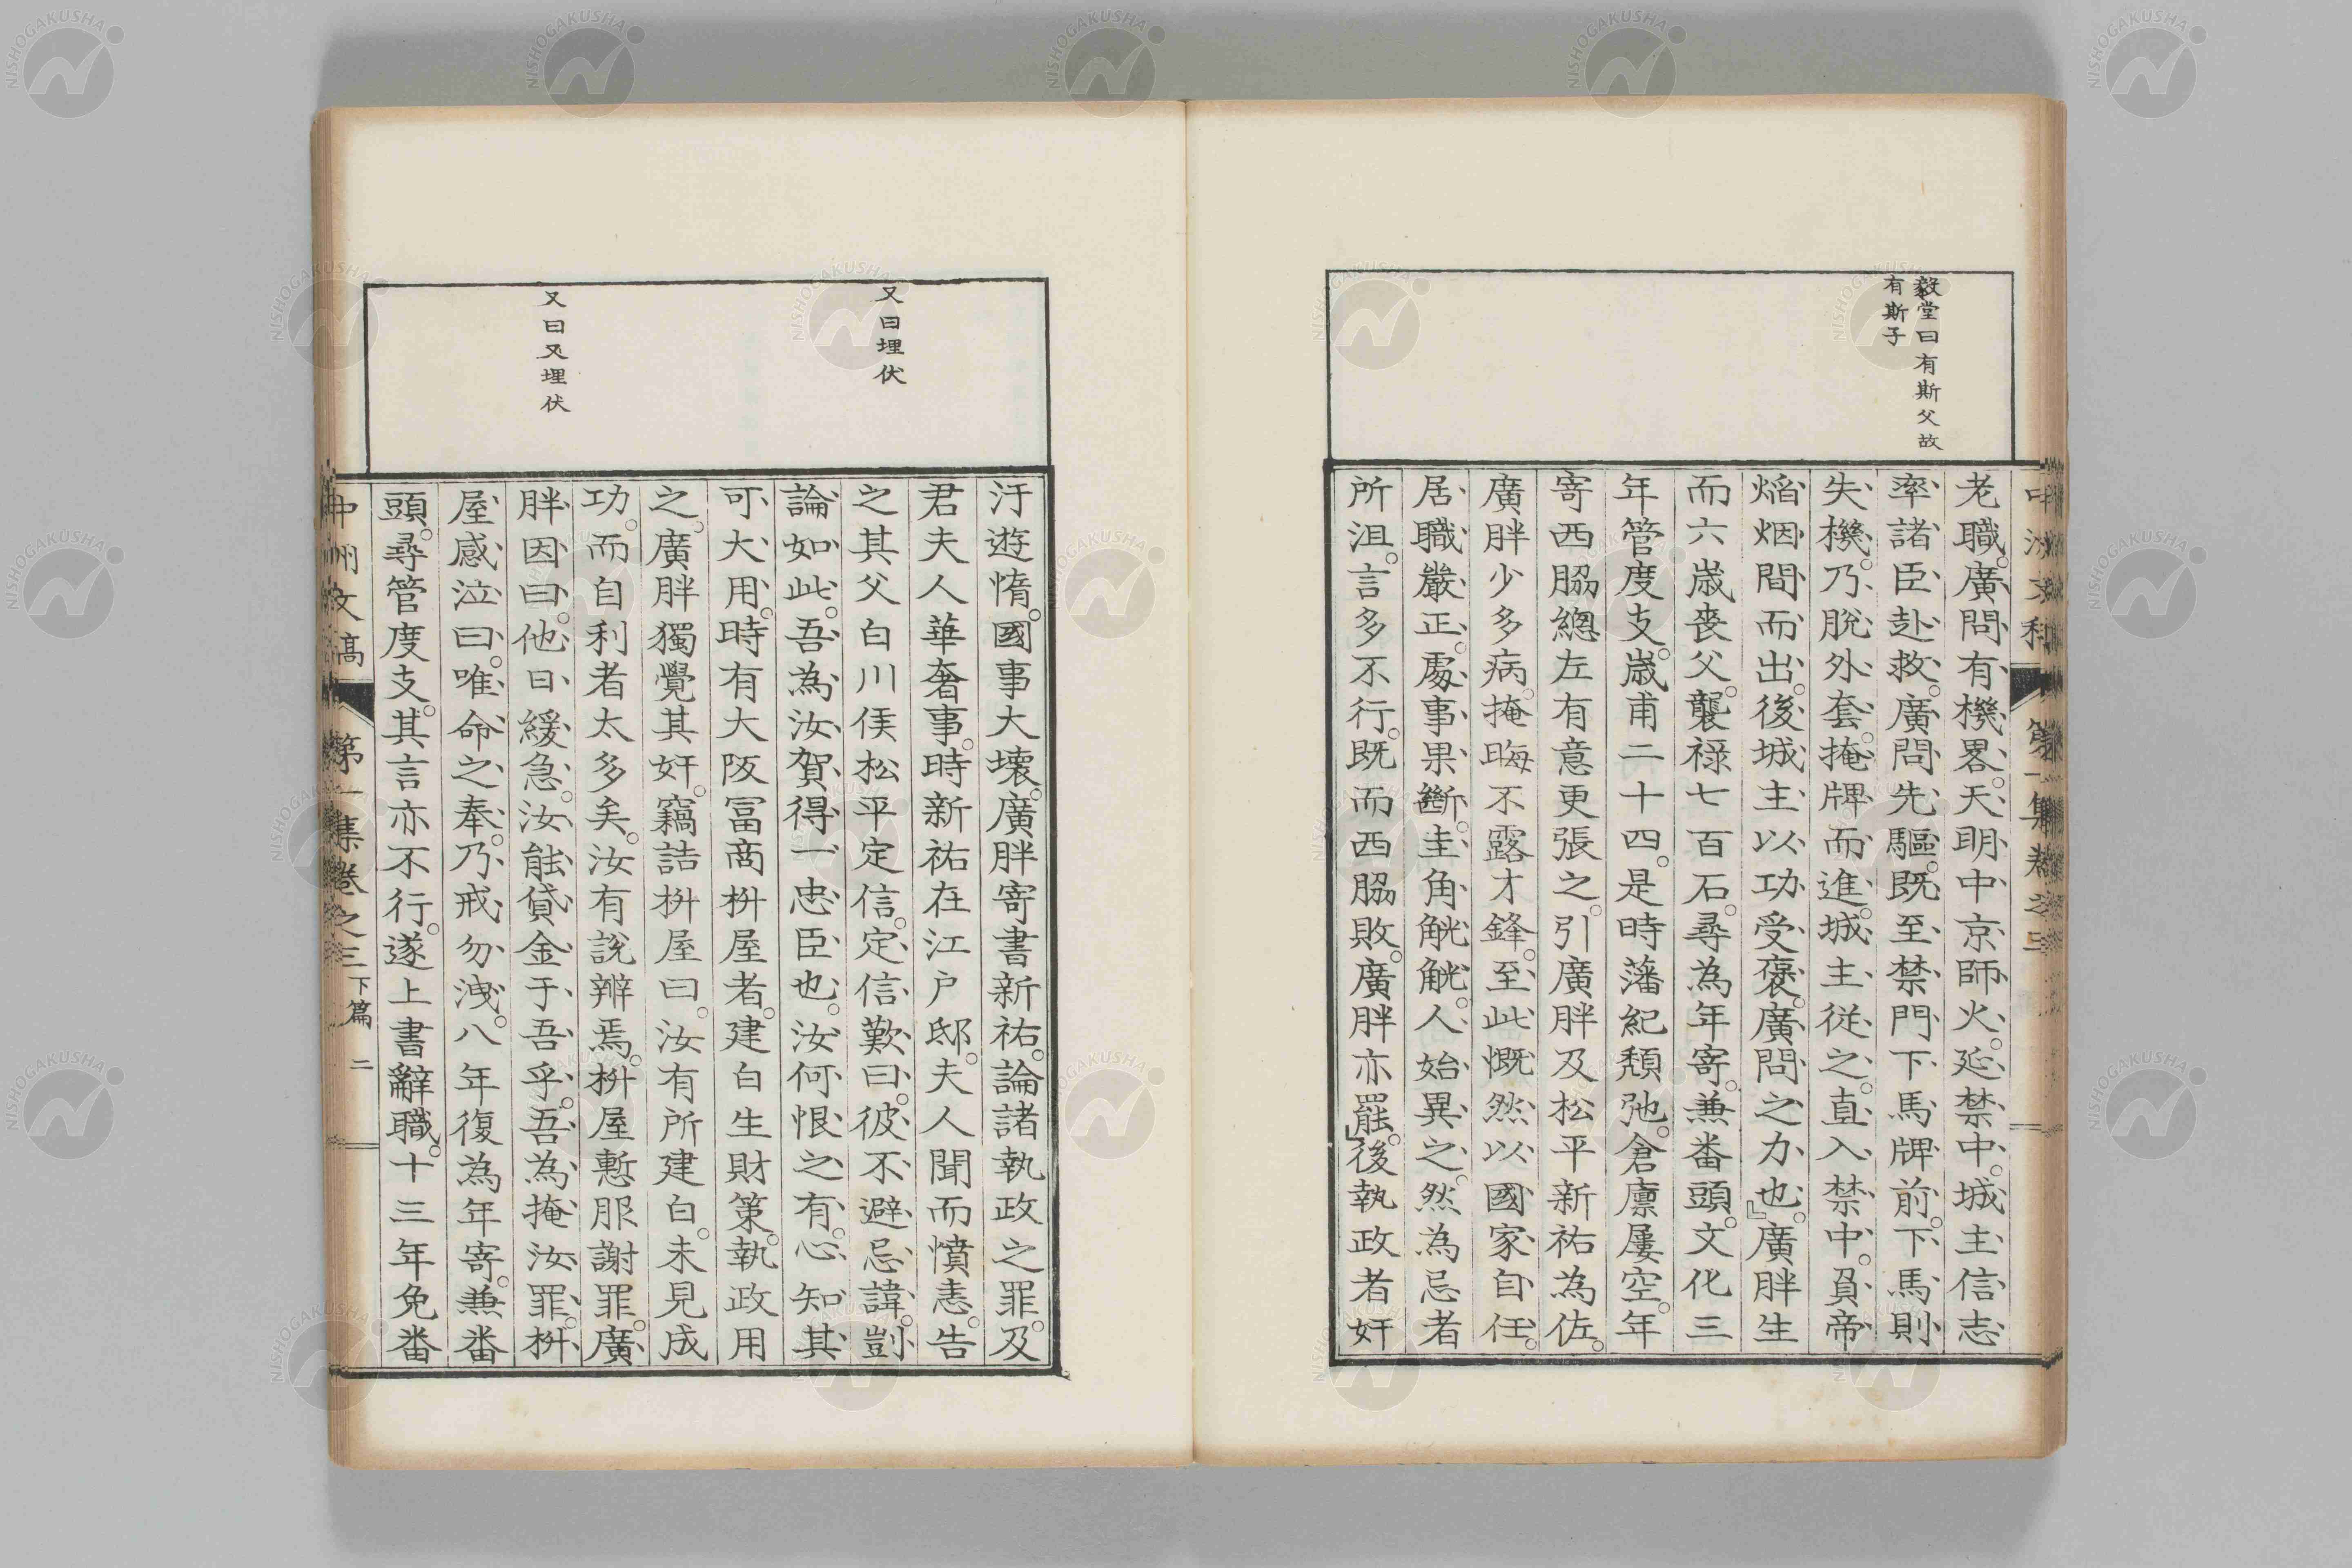 毅堂曰有斯父故
有斯子
老職。廣問有機畧。天明中京師火。延禁中。城主信志
率諸臣赴救。廣問先驅。既至禁門下馬牌前。下馬則
失機。乃脫外套。掩牌而進。城主從之。直入禁中。負帝
焰烟間而出。後城主以功受褒。廣問之力也。』廣胖生
而六歳喪父。襲祿七百石。尋為年寄。兼番頭。文化三
年管度支。歳甫二十四。是時藩紀頽弛。倉廪屢空。年
寄西脇總左有意更張之。引廣胖及松平新祐為佐。
廣胖少多病。掩晦不露才鋒。至此慨然以國家自任。
居職嚴正。處事果斷。圭角觥觥。人始異之。然為忌者
所沮。言多不行。既而西脇敗。廣胖亦罷。』後執政者奸
又曰埋伏
又曰又埋伏
汙遊惰。國事大壞。廣胖寄書新祐。論諸執政之罪。及
君夫人華奢事。時新祐在江戸邸。夫人聞而憤恚。告
之其父白川侯松平定信。定信歎曰。彼不避忌諱。剴
論如此。吾為汝賀得一忠臣也。汝何恨之有。心知其
可大用。時有大阪冨商枡屋者。建白生財策。執政用
之。廣胖獨覺其奸。竊詰枡屋曰。汝有所建白。未見成
功。而自利者太多矣。汝有說辨焉。枡屋慙服謝罪。廣
胖因曰。他日緩急。汝能貸金于吾乎。吾為掩汝罪。枡
屋感泣曰。唯命之奉。乃戒勿洩。八年復為年寄。兼番
頭。尋管度支。其言亦不行。遂上書辭職。十三年免番
中州文稿 第一集卷之三 下篇 二